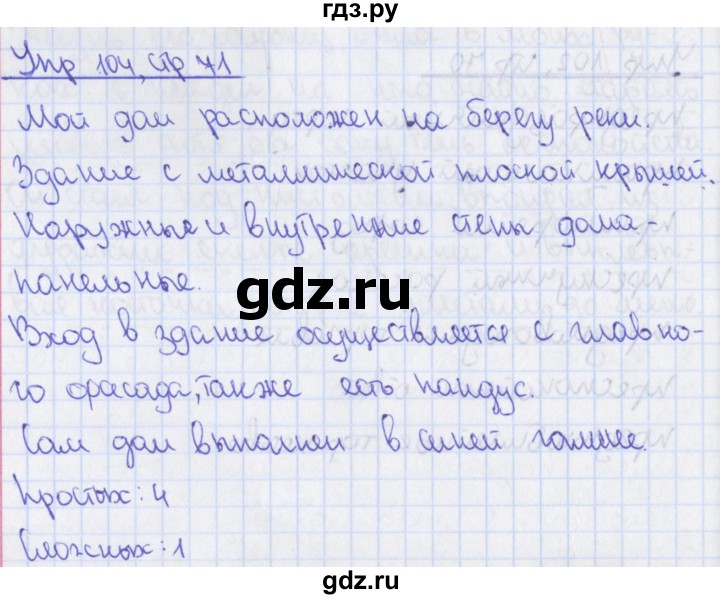 гдз.ру
Упр 104, стр 71
Мой дом расположен на берегу реки.
Здание с металлической плоской крышей.
Наружные и внутренние стены дома-
панельные.
gdz.ru
Вход в здание осуществляется с главно-
го фасада, также есть пандус.
Сам дом выполнен в синей гамме.
Простых: 4
Сложных: 1
gdz.ru